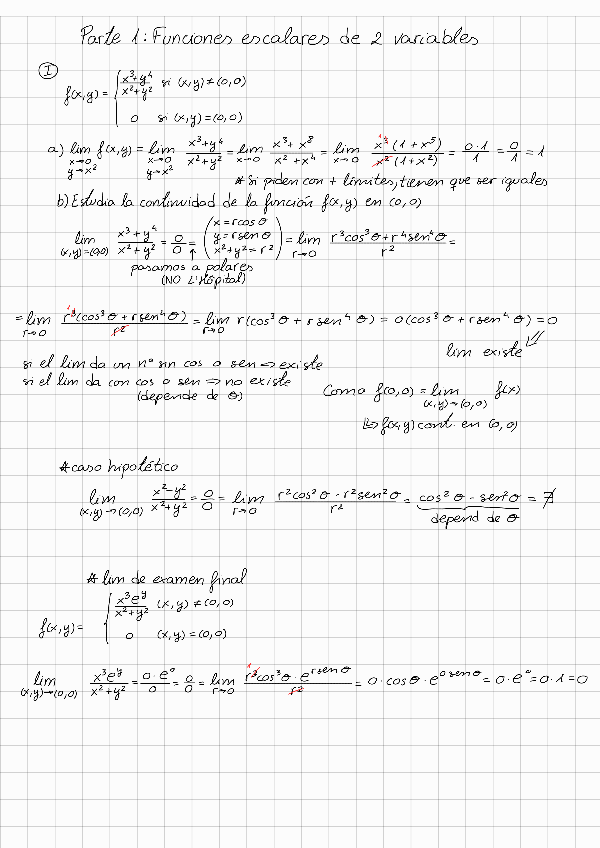 Parte 1: Funciones escalares de 2 variables
① f(x,y) = { x³+y⁴ / x²+y² si (x,y) ≠ (0,0)
0 si (x,y) = (0,0)
a) lim x→0 y→x² f(x,y) = lim x→0 y→x² x³+y⁴ / x²+y² = lim x→0 x³+x⁸ / x²+x⁴ = lim x→0 x³(1+x⁵) / x²(1+x²) = 0·1 / 1 = 0/1 = 1
* Si piden con + límites, tienen que ser iguales
b) Estudia la continuidad de la función f(x,y) en (0,0)
lim (x,y)=(0,0) x³+y⁴ / x²+y² = 0/0 = ( x = rcos θ y = rsen θ x²+y² = r² ) = lim r→0 r³cos³θ + r⁴sen⁴θ / r² =
pasamos a polares
(NO L'Hôpital)
= lim r→0 r³(cos³θ + r sen⁴θ) / r² = lim r→0 r(cos³θ + r sen⁴θ) = 0(cos³θ + r sen⁴θ) = 0
lim existe
si el lim da un nº sin cos o sen ⇒ existe
si el lim da con cos o sen ⇒ no existe
(depende de θ)
Como f(0,0) = lim (x,y)→(0,0) f(x)
↳ f(x,y) cont. en (0,0)
* caso hipotético
lim (x,y)→(0,0) x²-y² / x²+y² = 0/0 = lim r→0 r²cos²θ - r²sen²θ / r² = cos²θ - sen²θ = ∄
depend de θ
* lim de examen final
f(x,y) = { x³eʸ / x²+y² (x,y) ≠ (0,0)
0 (x,y) = (0,0)
lim (x,y)→(0,0) x³eʸ / x²+y² = 0·e⁰ / 0 = 0/0 = lim r→0 r³cos³θ · e^(r sen θ) / r² = 0·cosθ · e^(0 sen θ) = 0·e⁰ = 0·1 = 0